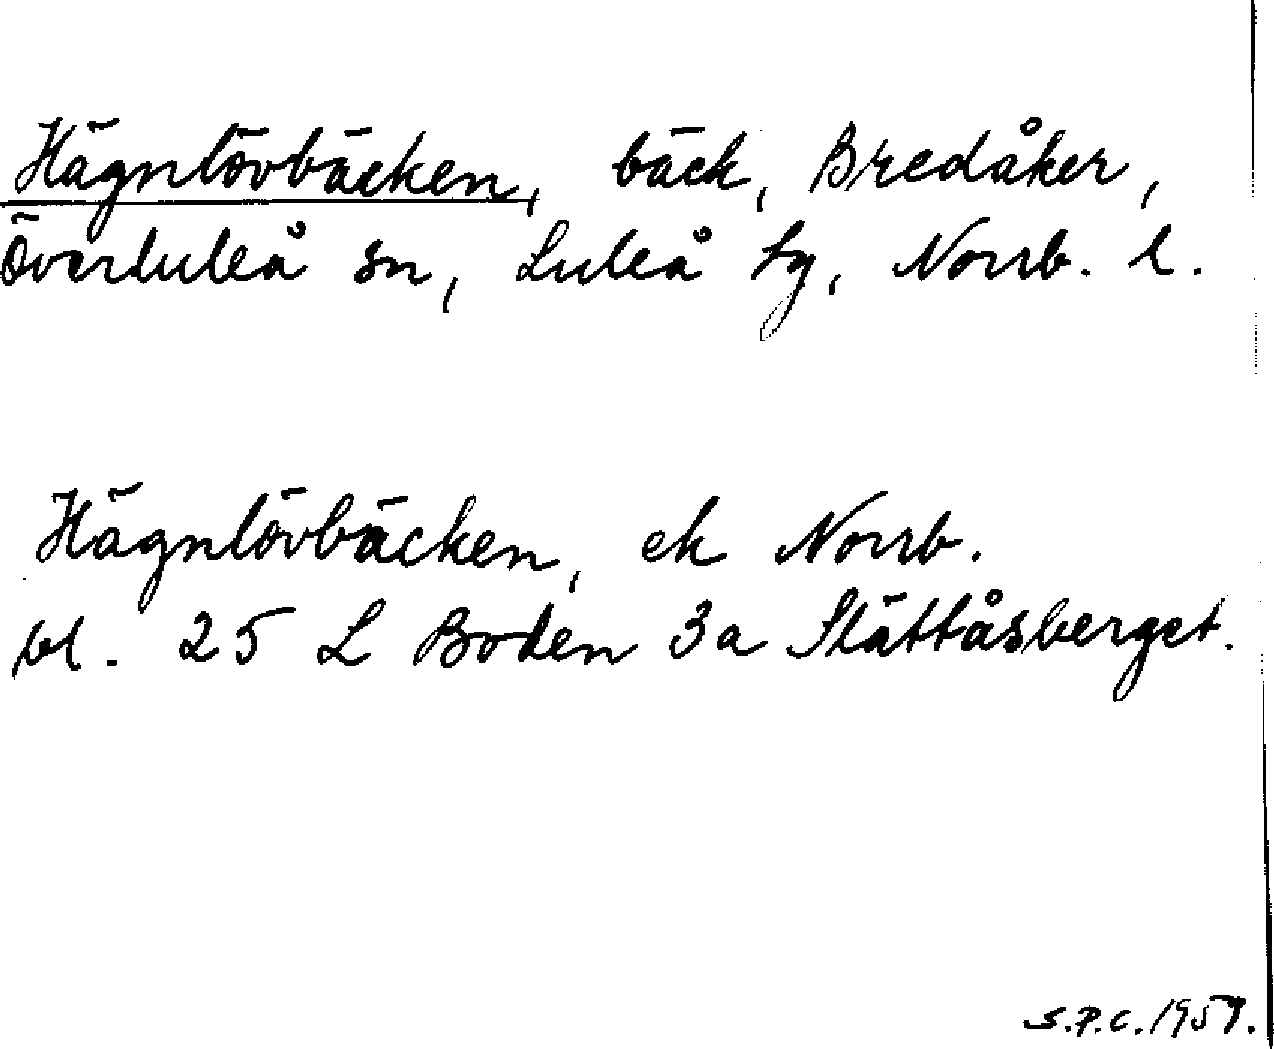 Hägnlövbäcken, bäck, Bredåker,
Överluleå sn, Luleå tg, Norrb. l.
Hägnlövbäcken, ek Norrb.
bl. 25 L Boden 3a Slättåsberget.
S.P.C. 1959.